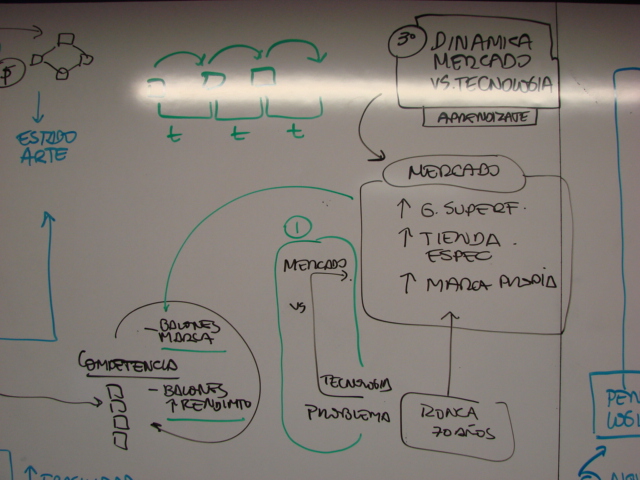 $
ESTADO
ARTE
t t t
3º DINAMICA
MERCADO
VS. TECNOLOGIA
APRENDIZATE
MERCADO
↑ G. SUPERF.
↑ TIENDA
ESPEC
↑ MARCA PROPIA
1
MERCADO
VS
TECNOLOGIA
PROBLEMA
COMPETENCIA
- BALONES
MARCA
- BALONES
↑ RENDIMTO
70 AÑOS